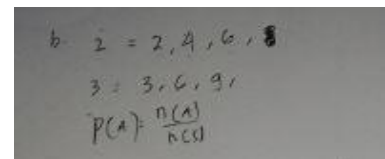 b. 2 = 2, 4, 6,
3 = 3, 6, 9,
P(A) = n(A)/n(S)